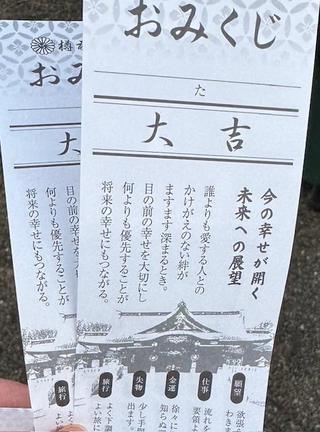 おみくじ
た
大吉
今の幸せが開く
未来への展望
誰よりも愛する人との
かけがえのない絆が
ますます深まるとき。
目の前の幸せを大切にし
何よりも優先することが
将来の幸せにもつながる。
願望
欲張
わきま
仕事
流れを
要領よ
金運
徐々に
知らぬ
失物
少し手間
出ます。
旅行
よく下調
よい旅に
おみ
大
目の前の
何よりも優先することが
将来の幸せにもつながる。
旅行